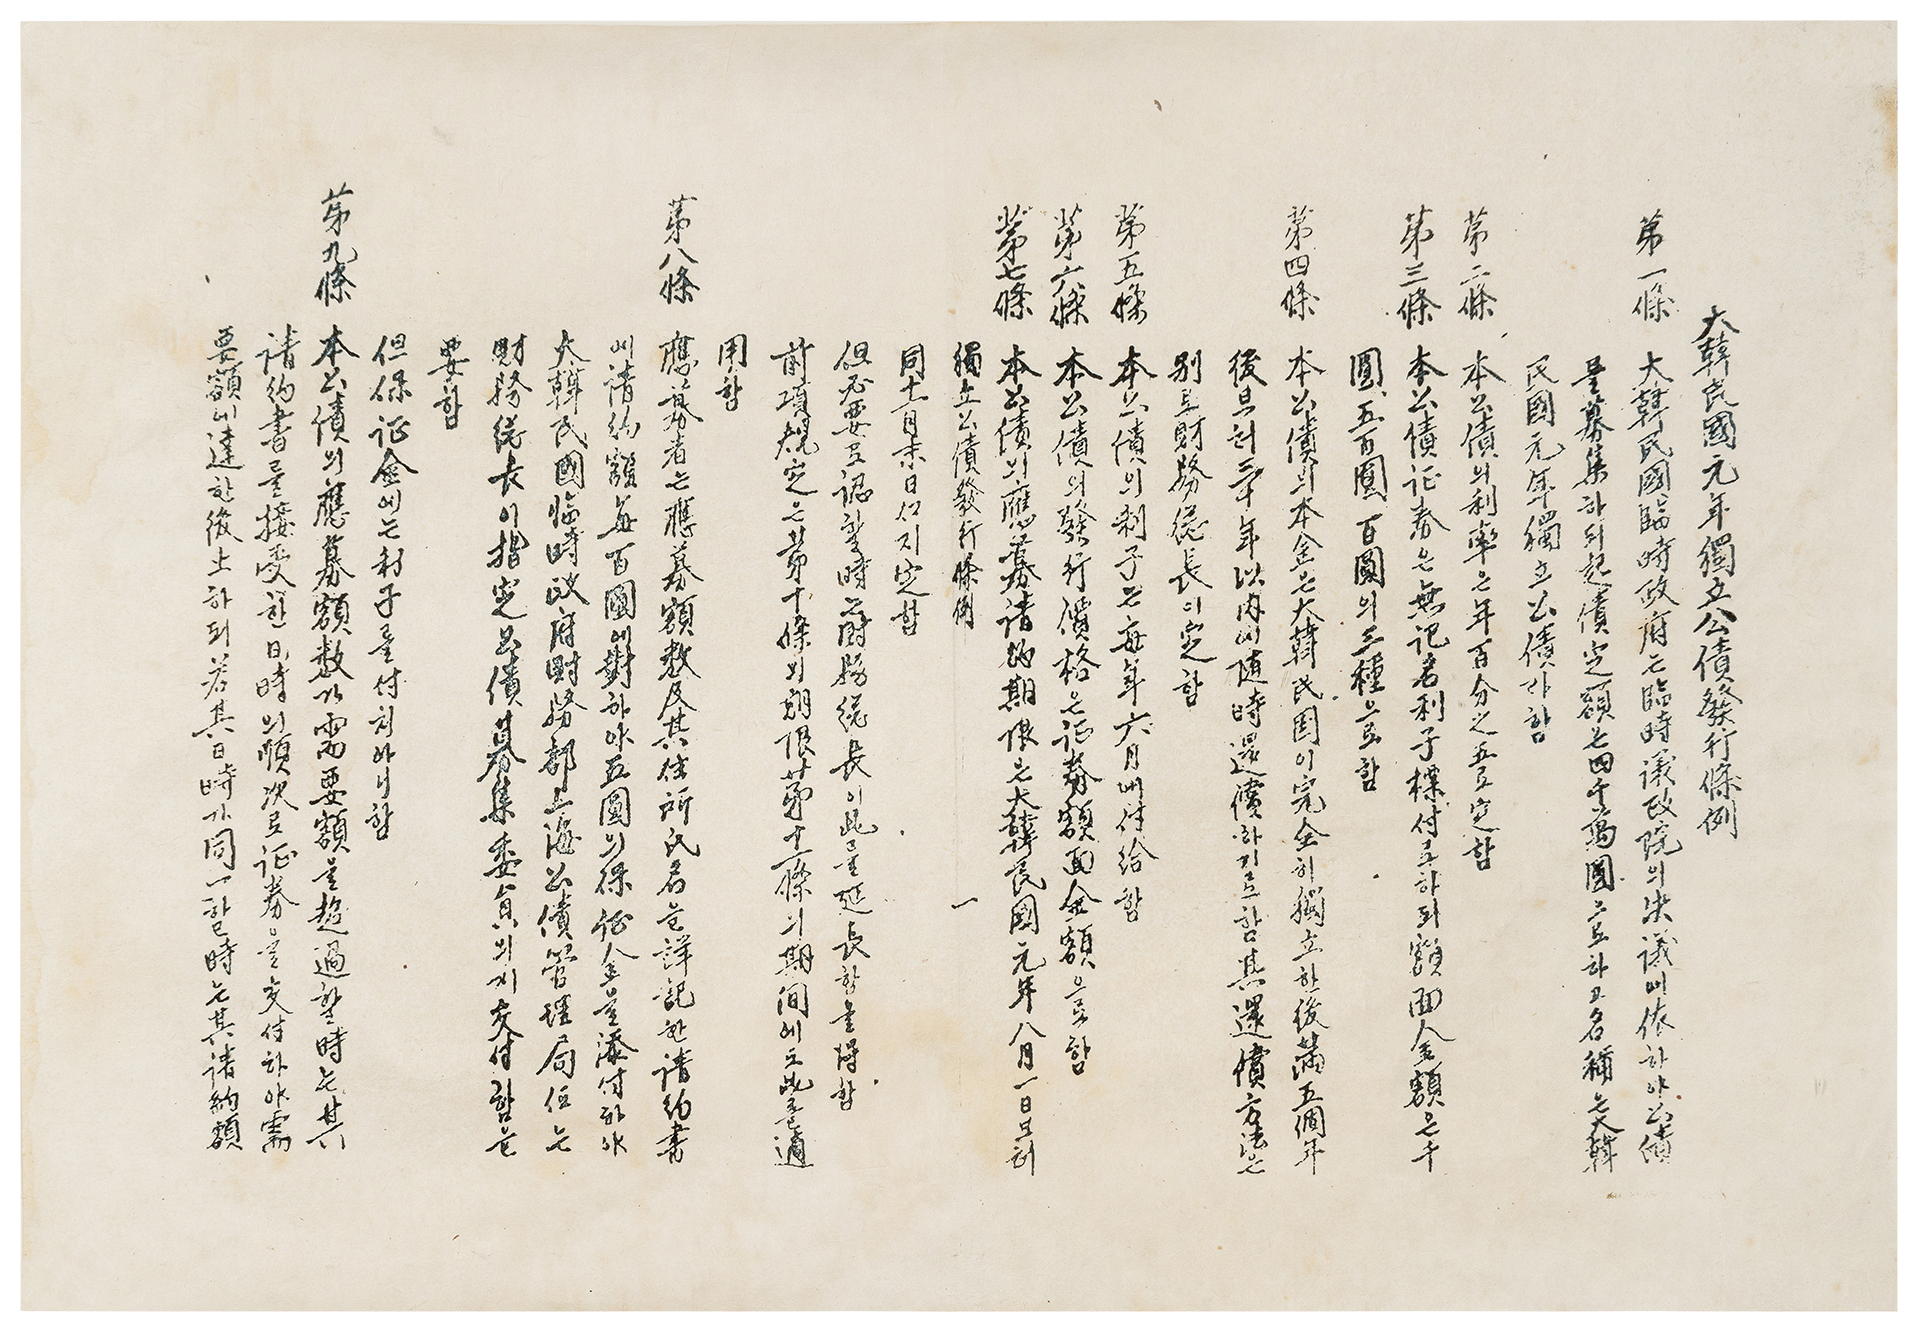 大韓民國元年獨立公債發行條例
第一條 大韓民國臨時政府는臨時議政院의決議에依하야公債
를募集하되起債定額은四千萬圓으로하고名稱은大韓
民國元年獨立公債라함
第二條 本公債의利率은年百分之五로定함
第三條 本公債証券은無記名利子樸付로하되額面金額은千
圓、五百圓、百圓의三種으로함
第四條 本公債의本金은大韓民国이完全히獨立한後滿五個年
後로브터三十年以內에随時還償하기로함其還償方法은
別로財務総長이定함
第五條 本公債의利子는每年六月에付給함
第六條 本公債의發行價格은証券額面金額으로함
第七條 本公債의應募請約期限은大韓民國元年八月一日브터
獨立公債發行條例 一
同十一月末日ᄭᅡ지定함
但必要로認할時는財務総長이此를延長함을得함
前項規定은第十條의期限第十一條의期間에도此를適
用함
第八條 應募者는應募額數及其住所氏名을詳記한請約書
에請約額每百圓에對하야五圓의保証金을添付하야
大韓民國臨時政府財務部上海公債管理局任은
財務総長이指定한公債募集委員의게交付함을
要함
但保証金에는利子를付치아니함
第九條 本公債의應募額數가需要額을超過할時는其
請約書를接受한日時의順次로証券을交付하야需
要額에達한後止하되若其日時가同一할時는其請約額